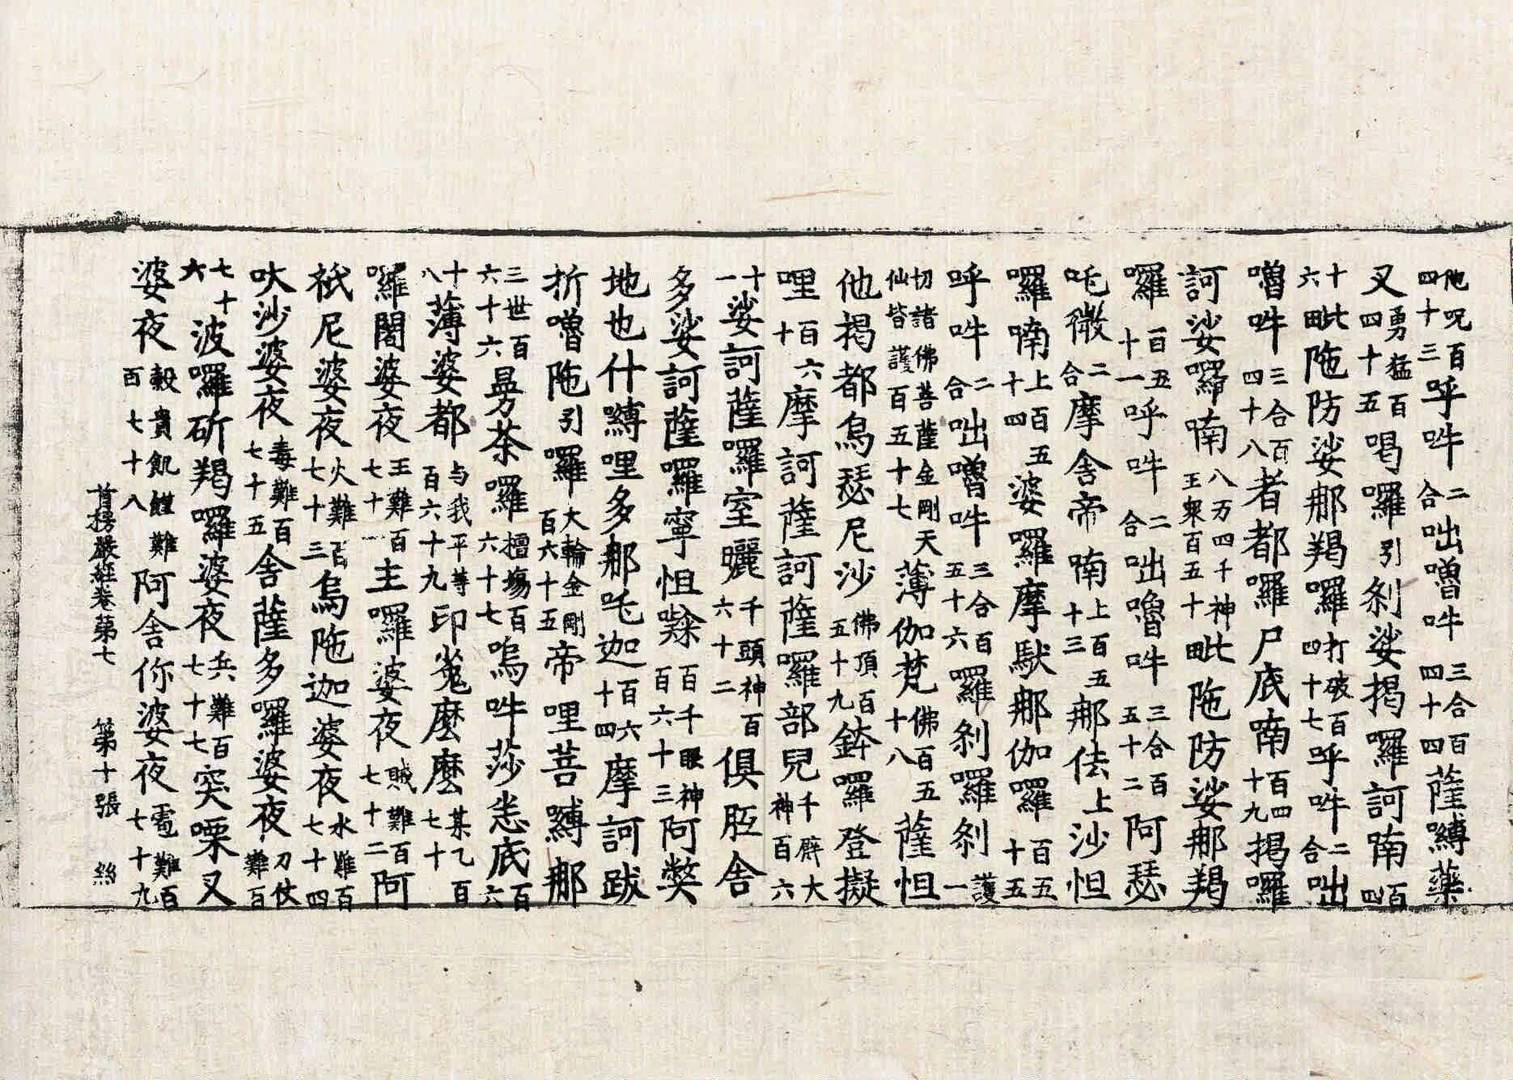 他呪百四十三呼𤙖二合咄嚕𤙖三合百四十四薩縛藥
叉勇猛百四十五喝囉引剎娑揭囉訶喃百四
十六毗陁防娑那羯囉打破百四十七呼𤙖二合咄
嚕𤙖三合百四十八者都囉尸底喃百四十九揭囉
訶娑囉喃八万四千神王衆百五十毗陁防娑那羯
囉百五十一呼𤙖二合咄嚕𤙖三合百五十二阿瑟
吒微二合摩舍帝喃上百五十三那佉上沙怛
囉喃上百五十四婆囉摩馱那伽囉百五十五
呼𤙖二合咄嚕𤙖三合百五十六囉剎囉剎護一
切諸佛菩薩金剛天仙皆護百五十七薄伽梵佛百五十八薩怛
他揭都烏瑟尼沙佛頂百五十九鉢囉登擬
哩百六十摩訶薩訶薩囉部兒千臂大神百六
十一娑訶薩囉室曬千頭神百六十二俱胝舍
多娑訶薩囉寧怛㘑百千眼神百六十三阿獘
地也什縛哩多那吒迦百六十四摩訶跋
折嚕陁引囉大輪金剛百六十五帝哩菩縛那
三世百六十六曼荼囉檀塲百六十七嗚𤙖莎悉底百六
十八薄婆都与我平等百六十九印㝹麽麽某乙百七十
囉闍婆夜王難百七十一主囉婆夜賊難百七十二阿
祇尼婆夜火難百七十三烏陁迦婆夜水難百七十四
吠沙婆夜毒難百七十五舍薩多囉婆夜刀仗難百
七十六波囉斫羯囉婆夜兵難百七十七突㗚叉
婆夜穀貴飢饉難百七十八阿舍你婆夜雹難百七十九
首楞嚴經卷第七 第十張 絲